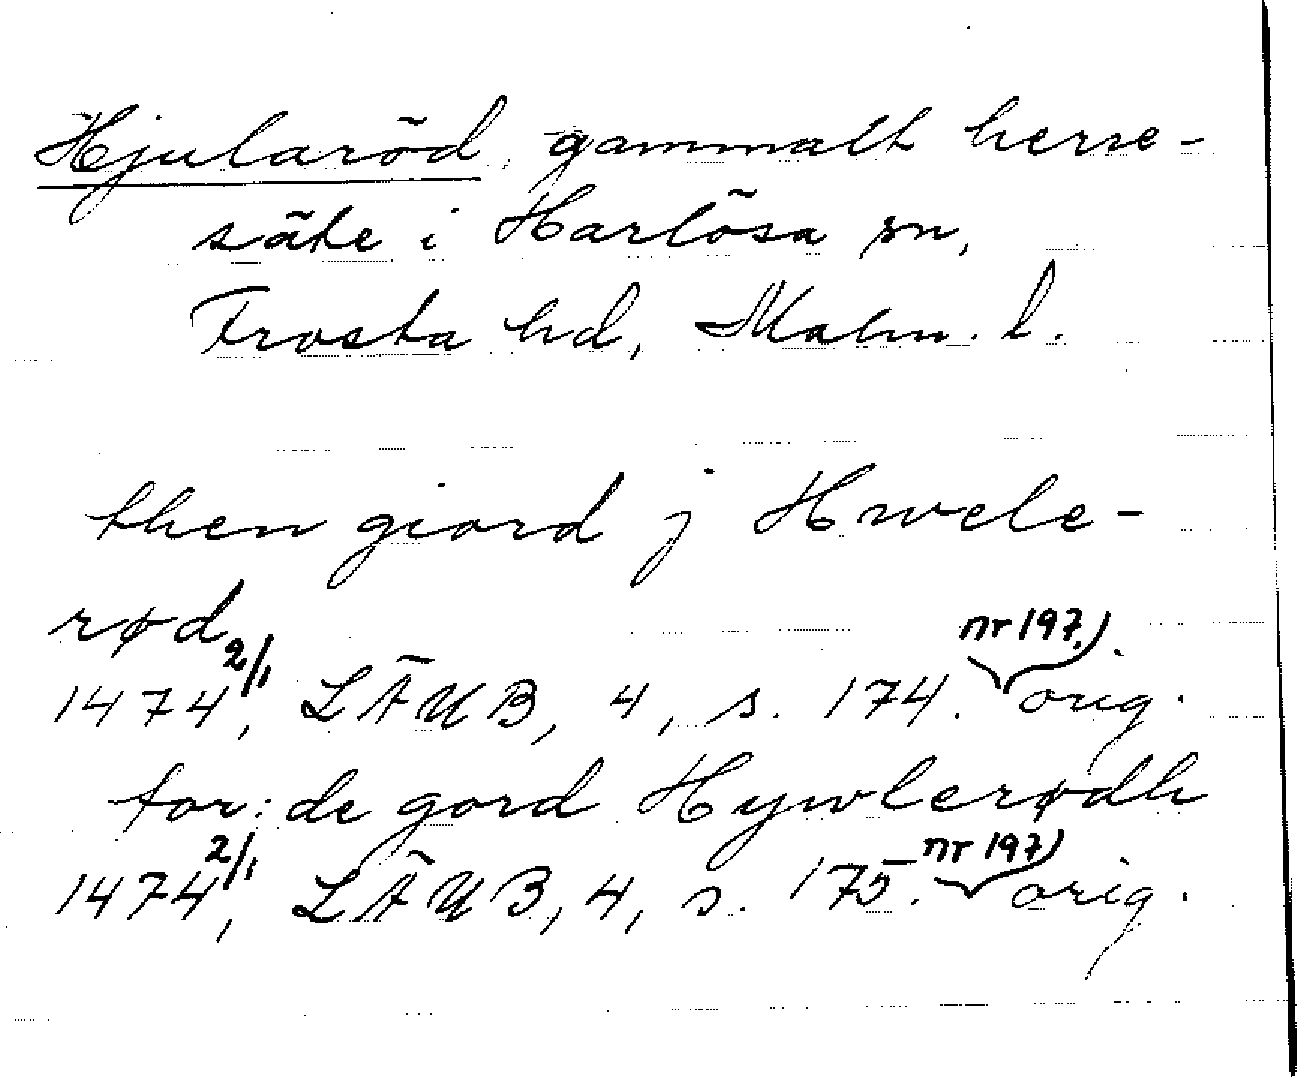 Hjularöd, gammalt herre-
säte i Harlösa sn,
Frosta hd, Malm. l.
then giord j Hwele-
rød
1474 2/1, LÄUB, 4, s. 174. nr 197.) orig.
for: de gord Hywlerødh
1474 2/1, LÄUB, 4, s. 175. nr 197) orig.